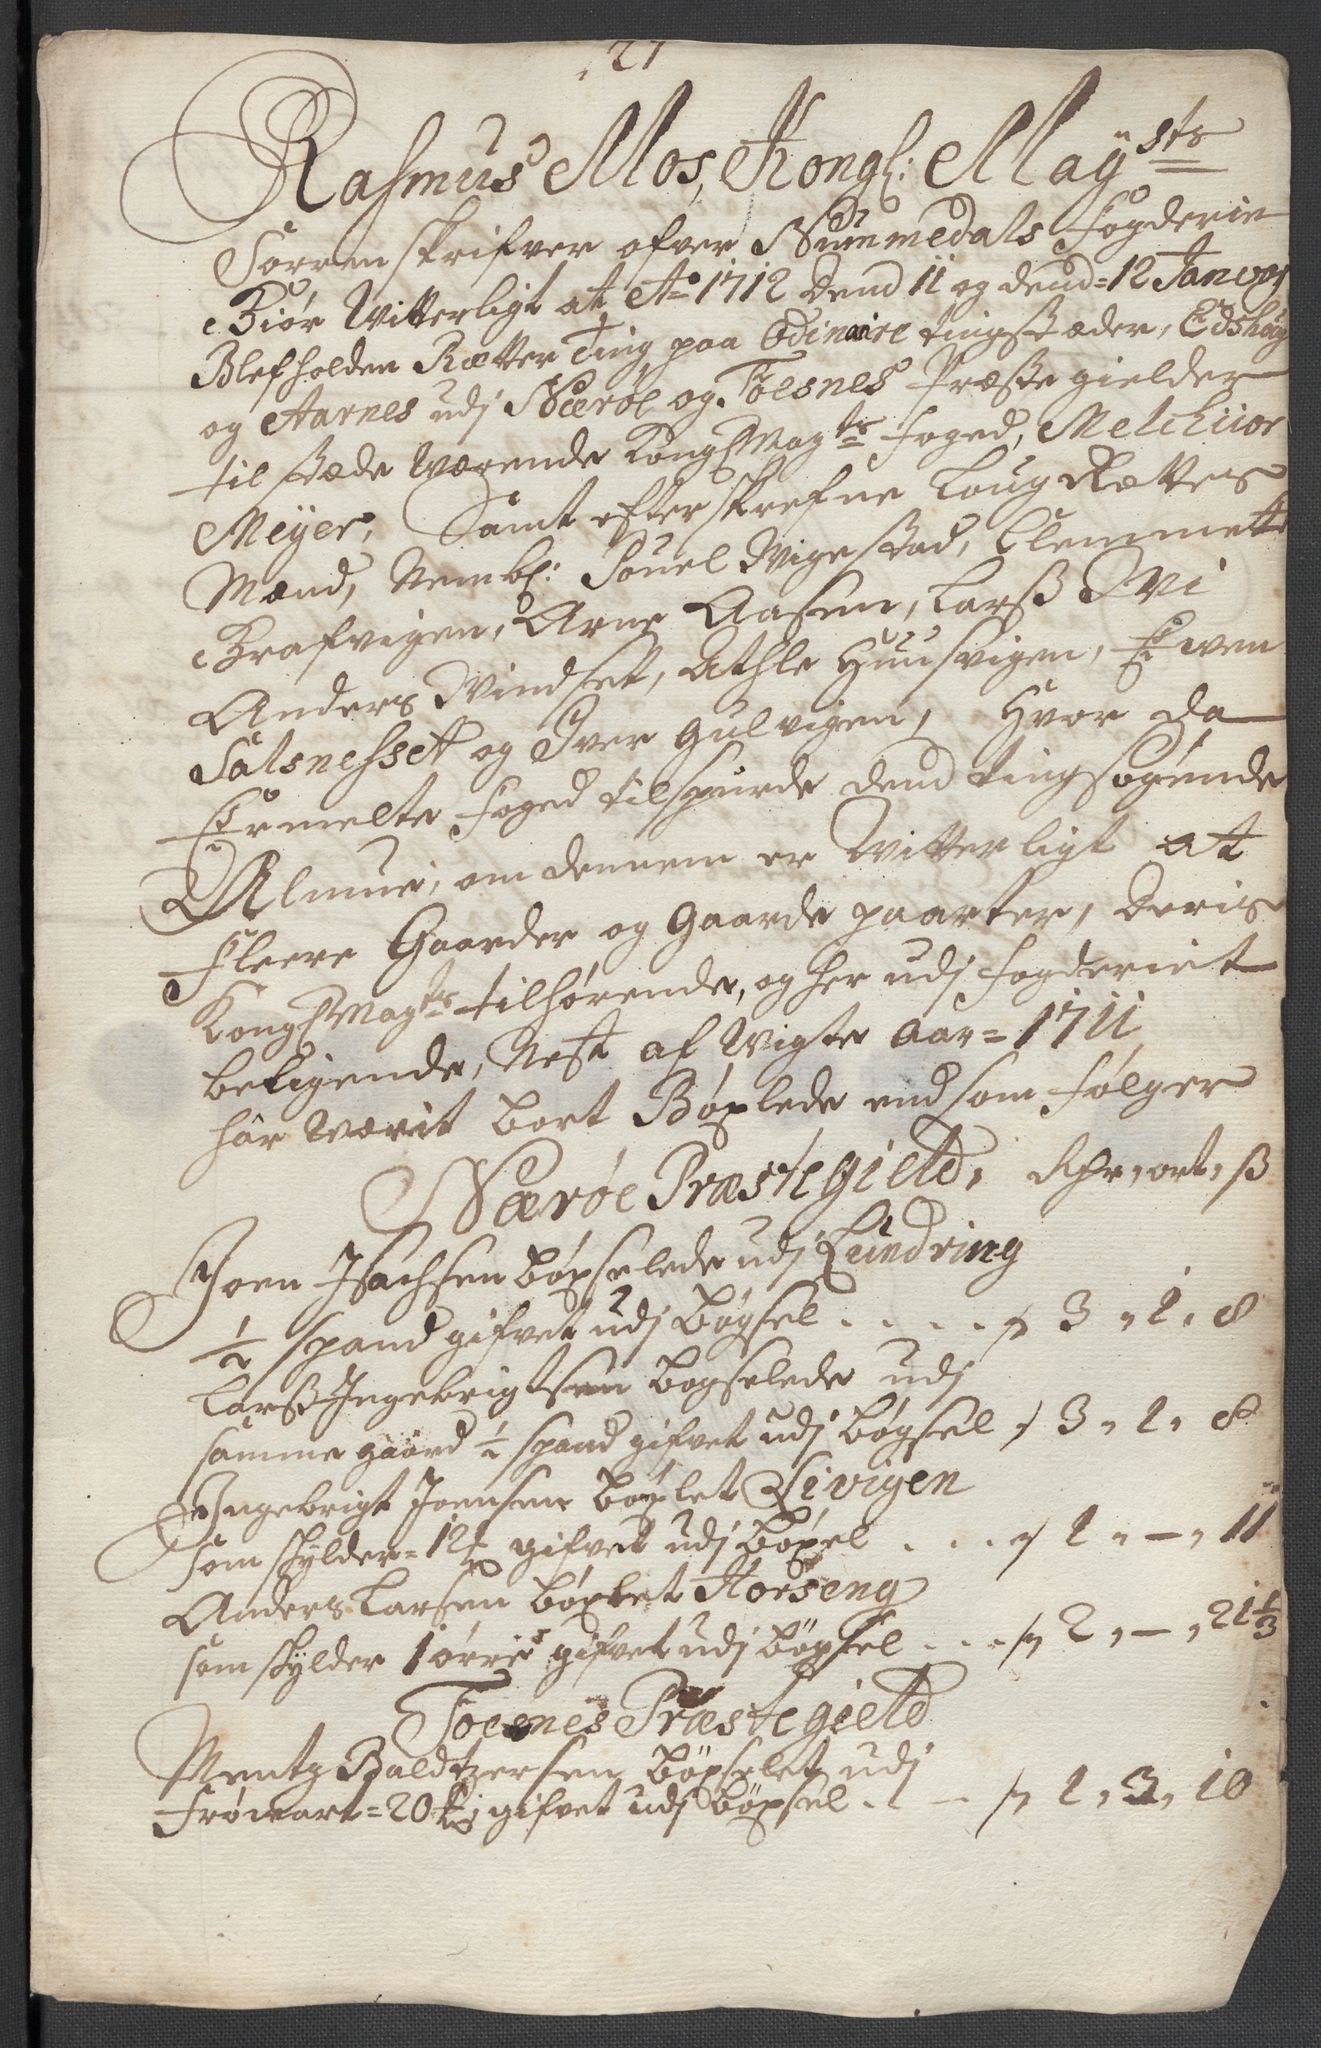 21
Rasmus Mos, Kongl: Mayˢᵗˢ
Sorrenskrifver ofver Nummedals Fogderie
Giør Witterligt at Aº 1712 Dend 11 og dend=12 Janvarj
Blef holden Rætter Ting paa Ordinaire tingstæder, Edshoug
og Aarnes udj Nærøe og Foesnes Præstegielder
til stæde Wærende Kongl Mayᵗˢ Foged, Melchiior
Meÿer, Samt efterskrefne Laug Rættes
Mænd, Nembl: Pouel Wigestad, Clemmett
Grafvigen, Arne Aasen, Larß Wi
Anders Windset, Athle Huusvigen, Ewen
Salsnesset og Iver Gulvigen, Hvor da
Ermelte Foged tilspurde dend tingsøgende
Almue, om dennem er Witterligt at
Fleere Gaarder og Gaarde paarter, Deris
Kongl Mayᵗˢ tilhørende, og her udj Fogderiet
beligende, Nest afvigte aar=1711
har værit bort Bøxlede end som følger
Nærøe Præstegield, Rdr, ort, ß
Joen Isachsen bøxselede udj Lundring
1/2 spand gifvet udj bøgsel . . . . 3 , 1 , 8
Larß Ingebrigtsen bogselede udj
samme gaard 1/2 spand gifvet udj bøgsel 3 , 1 , 8
Ingebrigt Joensen bøxlet Livigen
som skylder=12 gifvet udj bøxel . . . 1 , — , 11
Anders Larsen bøxlet Horseng
som skylder 1 øre gifvet udj bøxsel . . . 2 , — , 21 1/3
Foesnes Præstegield
Mentz Baldtzersen bøxselet udj
Frøevart=20 gifvet udj bøxsel . . 1 , 3 , 10